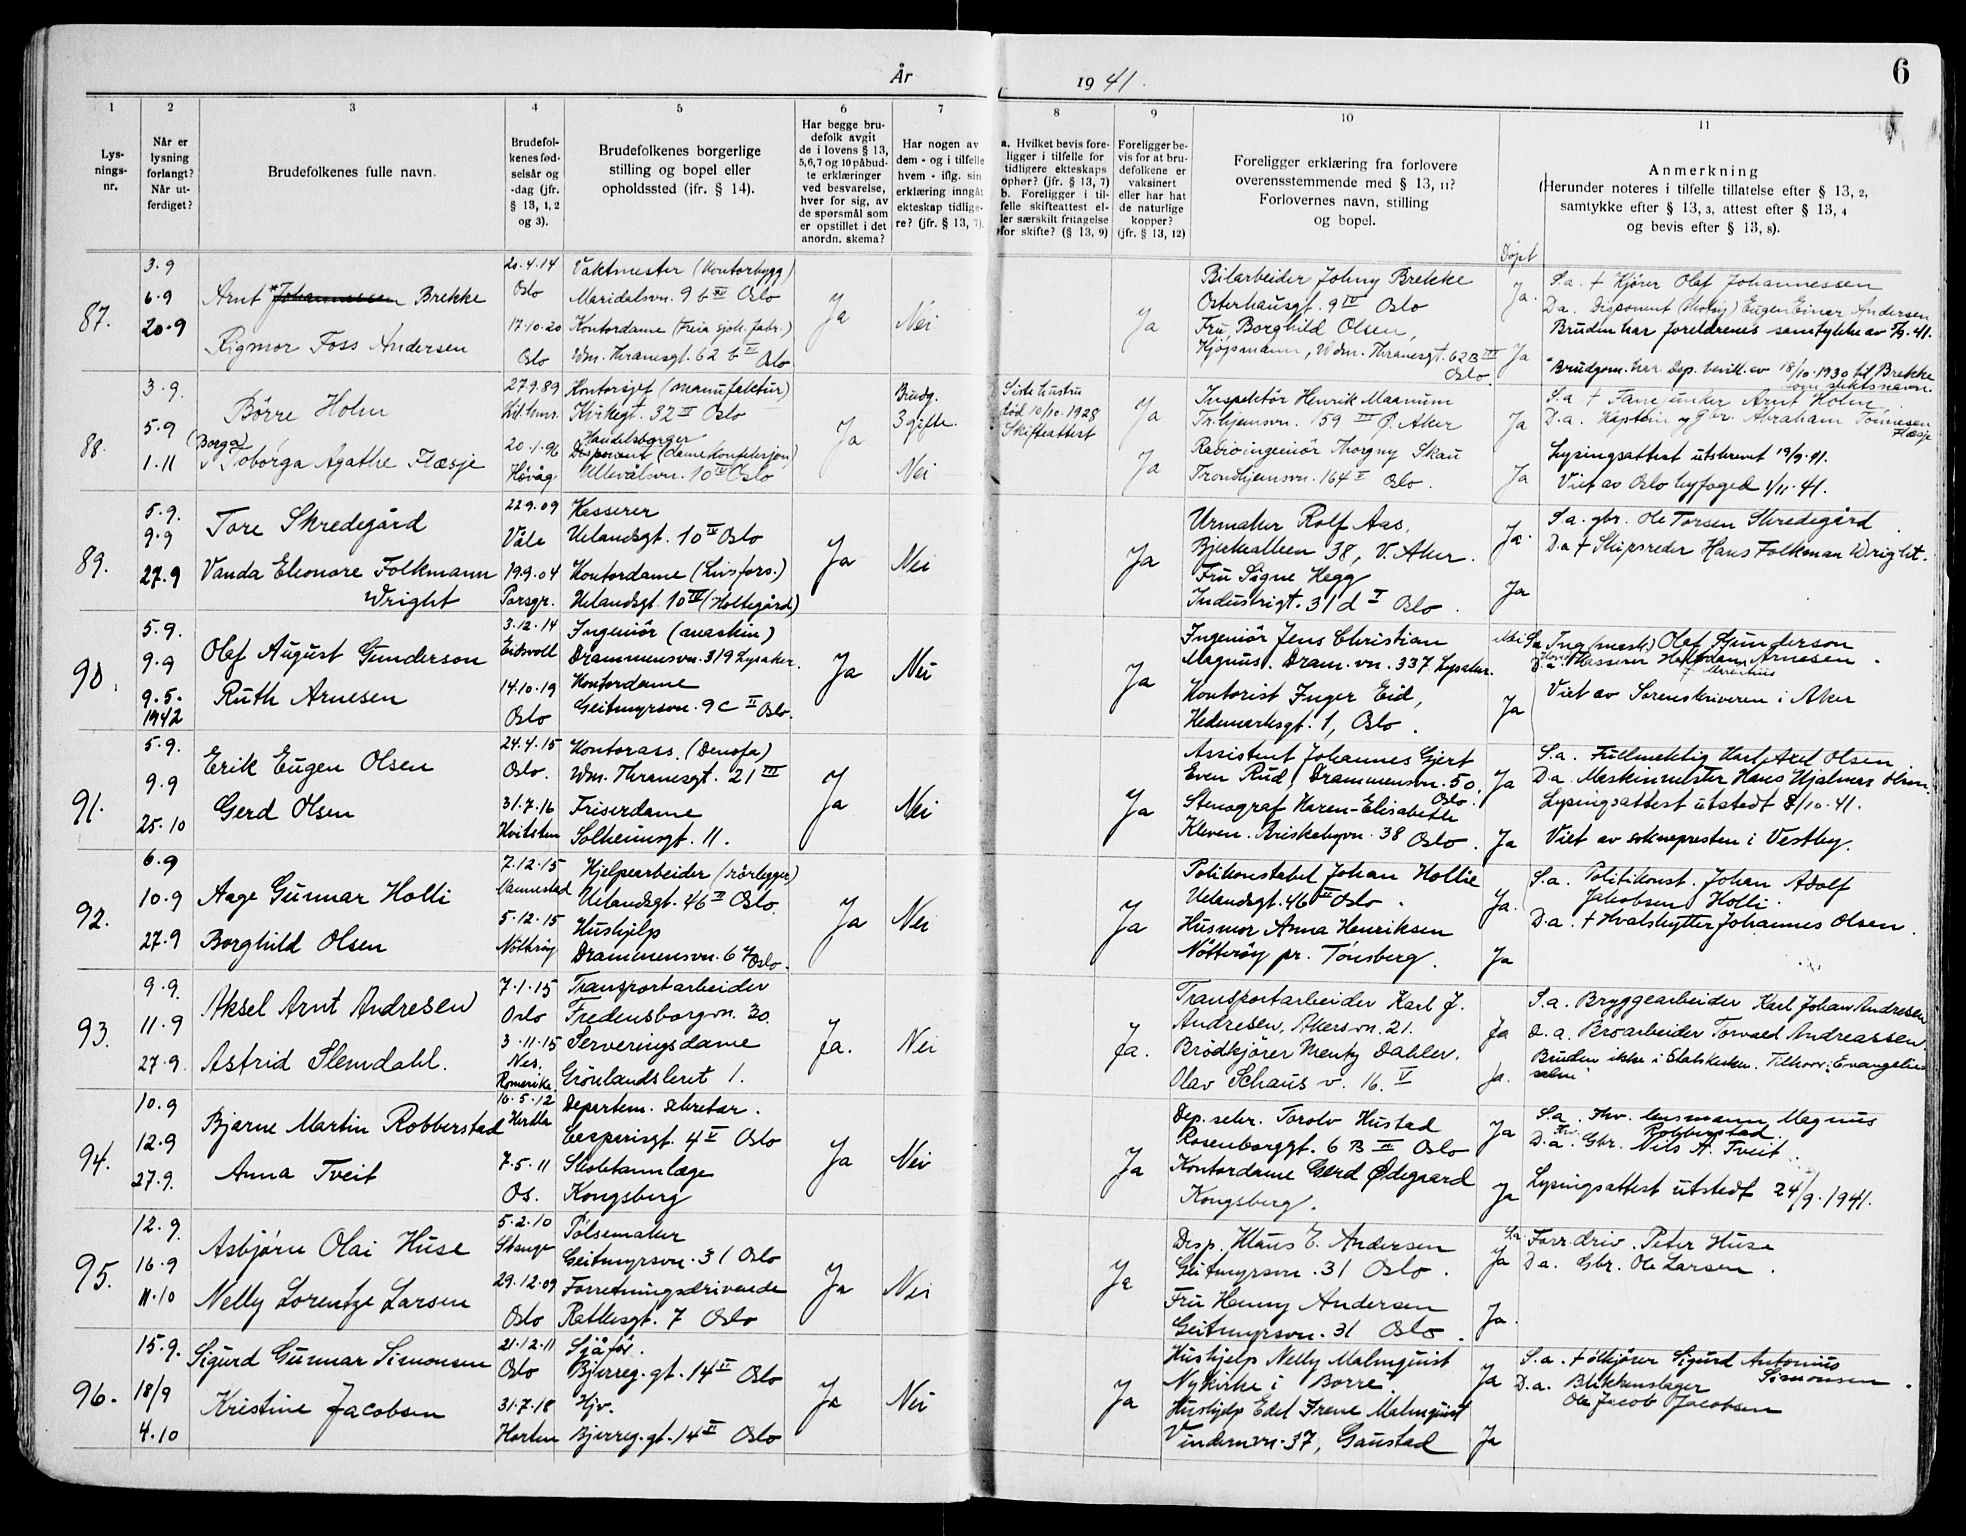 År
19 41.
6
1
Lys-
nings-
nr.
2
Når er
lysning
forlangt?
Når ut-
ferdiget?
3
Brudefolkenes fulle navn.
4
Brudefol-
kenes fød-
selsår og
-dag (jfr.
§ 13, 1, 2
og 3).
5
Brudefolkenes borgerlige
stilling og bopel eller
opholdssted (ifr. § 14).
6
Har begge bru-
defolk avgit
de i lovens § 13,
5,6,7 og 10 påbud-
te erklæringer
ved besvarelse,
hver for sig, av
de spørsmål som
er opstillet i det
anordn. skema?
7
Har nogen av
dem - og i tilfelle
hvem - iflg. sin
erklæring inngåt
ekteskap tidlige-
re? (jfr. § 13, 7).
8
a. Hvilket bevis fore-
ligger i tilfelle for
tidligere ekteskaps
ophør? (jfr. § 13, 7)
b. Foreligger i til-
felle skifteattest el-
ler særskilt fritagelse
for skifte? (§ 13, 9)
9
Foreligger be-
vis for at bru-
defolkene er
vaksinert
eller har hat
de naturlige
kopper?
(jfr. § 13, 12)
10
Foreligger erklæring fra forlovere
overensstemmende med § 13, 11?
Forlovernes navn, stilling
og bopel.
Døpt
11
Anmerkning
(Herunder noteres i tilfelle tillatelse efter § 13, 2,
samtykke efter § 13, 3, attest efter § 13, 4
og bevis efter § 13, 8).
87.
3.9
6.9
20.9
Arnt * Johannessen Brekke
Rigmor Foss Andersen
20.4.14
Oslo
17.10.20
Oslo
Vaktmester (Kontorbygg)
Maridalsvn. 9 b Oslo
Kontordame (Freia sjok. fabr.)
Wm. Thranesgt. 62 b II Oslo
Ja
Nei
Ja
Bilarbeider Johny Brekke
Osterhausgt. 9 IV Oslo
Fru Borghild Olsen,
Kjøpsmann, Wdm. Thranesgt. 62 B III
Oslo.
Ja.
Ja
S.a. + Kjører Olaf Johannessen
D.a. Disponent Eugen Einar Andersen
Bruden har foreldrenes samtykke av 41.
* Brudgom. har Dep. bevill. av 18/10.1930 til Brekke
som slektsnavn.
88.
3.9.
5.9
1.11
Børre Holm
(Borga)
Toborga Agathe Flæsje
27.9.89
Lil.hmr.
20.1.96
Høvåg
Kontorsjef (manufaktur)
Kirkegt. 32 II Oslo
Handelsborger
Disponent (damekonfeksjon)
Ullevålsvn. 10 II Oslo
Ja
Brudg.
3 gifte.
Nei
Siste hustru
død 10/10.1928
Skifteattest
Ja
Ja
Inspektör Henrik Maanum
Tr.hjemsvn. 159 III Ö. Aker
Radioingeniör Thorgny Skau
Trondhjemsvn. 164 V Oslo.
Ja
Ja
S.a. + Arnt Holm
D.a. Kaptein og Gbr. Abraham Tönnesen
Flæsje
Lysingsattest utskrevet 19/9.41.
Viet av Oslo byfoged 1/11.41.
89.
5.9.
9.9
27.9
Tore Skredegård
Vanda Eleonore Folkmann
Wright
22.9.09
Våle
19.9.04
Porsgr.
Kasserer
Uelandsgt. 10 IV Oslo
Kontordame (Livsfors.)
Uelandsgt. 10 IV (Holtegård)
Ja
Nei
Ja
Urmaker Rolf Aas,
Bjerkealleen 38, V. Aker.
Fru Signe Hegg
Industrigt. 31 d I Oslo.
Ja.
Ja
S.a. gbr. Ole Torsen Skredegård.
D.a + Skipsreder Hans Folkman Wright.
90.
5.9.
9.9
9.5.
1942
Olaf August Gunderson
Ruth Arnesen
3.12.14
Eidsvoll
14.10.19
Oslo
Ingeniör (maskin)
Drammensvn. 319 Lysaker.
Kontordame
Geitmyrsvn. 9 C II Oslo.
Ja
Nei
Ja
Ingeniör Jens Christian
Magnus. Dram.vn. 337 Lysaker.
Kontorist Inger Eid,
Hedemarksgt. 1, Oslo.
Nei
Ja
S.a. Ing (mask.) Olaf Gunderson
D.a. Kasserer Halfdan Arnesen.
Viet av Sorenskriveren i Aker
91.
5.9.
9.9
25.10
Erik Eugen Olsen
Gerd Olsen
24.4.15
Oslo.
31.7.16
Hvitsten
Kontorass. (Denofa)
Wm. Thranesgt. 21 III
Friserdame
Solheimsgt. 11.
Ja
Nei
Ja
Assistent Johannes Gjert
Even Rud, Drammensvn. 50,
Oslo.
Stenograf Karen-Elisabeth
Kleven. Briskebyvn. 38 Oslo.
Ja
Ja
S.a. Fullmektig Karl Axel Olsen
D.a. Maskinmester Hans Hjalmar Olsen.
Lysingsattest utstedt 8/10.41.
Viet av sokneprestem i Vestby.
92.
6.9
10.9
27.9
Aage Gunnar Holli
Borghild Olsen
7.12.15
Vannestad
5.12.15
Nötteröy
Hjelpearbeider (rörlegger)
Uelandsgt. 46 II Oslo.
Hushjelp
Drammensvn. 64 Oslo.
Ja
Nei
Ja
Politikonstabel Johan Hollie
Uelandsgt. 46 III Oslo.
Husmor Anna Henriksen
Nötteröy pr. Tönsberg.
Ja.
Ja
S.a. Politikonst. Johan Adolf
Jakobsen Holli.
D.a. + Hvalskytter Johannes Olsen.
93.
9.9.
11.9
27.9.
Aksel Arnt Andresen
Astrid Slemdahl.
7.1.15
Oslo
3.11.15
Nes.
Romerike.
Transportarbeider
Fredensborgvn. 30.
Serveringsdame
Grönlandsleret 1.
Ja.
Nei
Ja.
Transportarbeider Karl J.
Andresen, Akersvn. 21.
Brödkjörer Mentz Dahler,
Olav Schaus v. 16. V
Ja
Ja.
S.a. Bryggearbeider Karl Johan Andresen
D.a. Broarbeider Torvald Andreassen.
Bruden ikke i Statskirken.
94.
10.9
12.9
27.9.
Bjarne Martin Robberstad
Anna Tveit
16.5.12
Herdla
7.5.11
Os.
Departem. sekretær.
Casparisgt. 4 V Oslo
Skoletannlæge
Kongsberg
Ja
Nei
Ja
Dep. sekr. Torolv Hustad
Rosenborggt. 6 B III Oslo
Kontordame Gerd Ødegaard
Kongsberg.
Ja
Ja
S.a. Fhv. lensmann Magnus
Robberstad.
D.a. Fhv. Gbr. Nils A. Tveit.
Lysingsattest utstedt 24/9.1941.
95.
12.9.
16.9
11.10
Asbjörn Olai Huse
Nelly Lorentze Larsen
5.2.10
Stange
29.12.09
Oslo
Pölsemaker
Geitmyrsvn. 31 Oslo
Forretningsdrivende
Ratkesgt. 7 Oslo
Ja
Nei
Ja
Disp. Klaus E. Andersen
Geitmyrsvn. 31 Oslo.
Fru Henny Andersen
Geitmyrsvn. 31 Oslo.
Ja
Ja.
S.a. Forr.driv. Peter Huse
D.a. Gbr. Ole Larsen.
96.
15.9.
18/9
4.10
Sigurd Gunnar Simonsen
Kristine Jacobsen
21.12.11
Oslo
31.7.18
Horten
Sjåför.
Bjerreg.gt. 14 II Oslo
Hjv.
Bjerreg.gt. 14 II Oslo
Ja
Nei
Ja
Hushjelp Nelly Malmquist
Nykirke i Borre.
Hushjelp Edel Irene Malmquist
Vindernvn. 37, Gaustad
Ja
Ja
S.a. + ölkjører Sigurd Antonius
Simonsen.
D.a. Blikkenslager
Ole Jacob Jacobsen